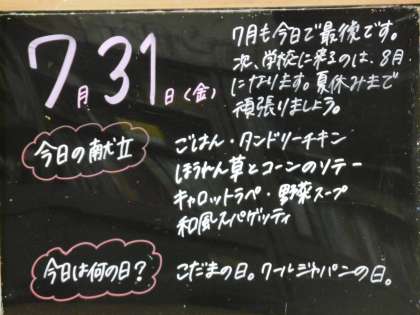 7月31日(金)
7月も今日で最後です。
次、学校に来るのは、8月
になります。夏休みまで
頑張りましょう。
今日の献立
ごはん・タンドリーチキン
ほうれん草とコーンのソテー
キャロットラペ・野菜スープ
和風スパゲッティ
今日は何の日?
こだまの日。クールジャパンの日。